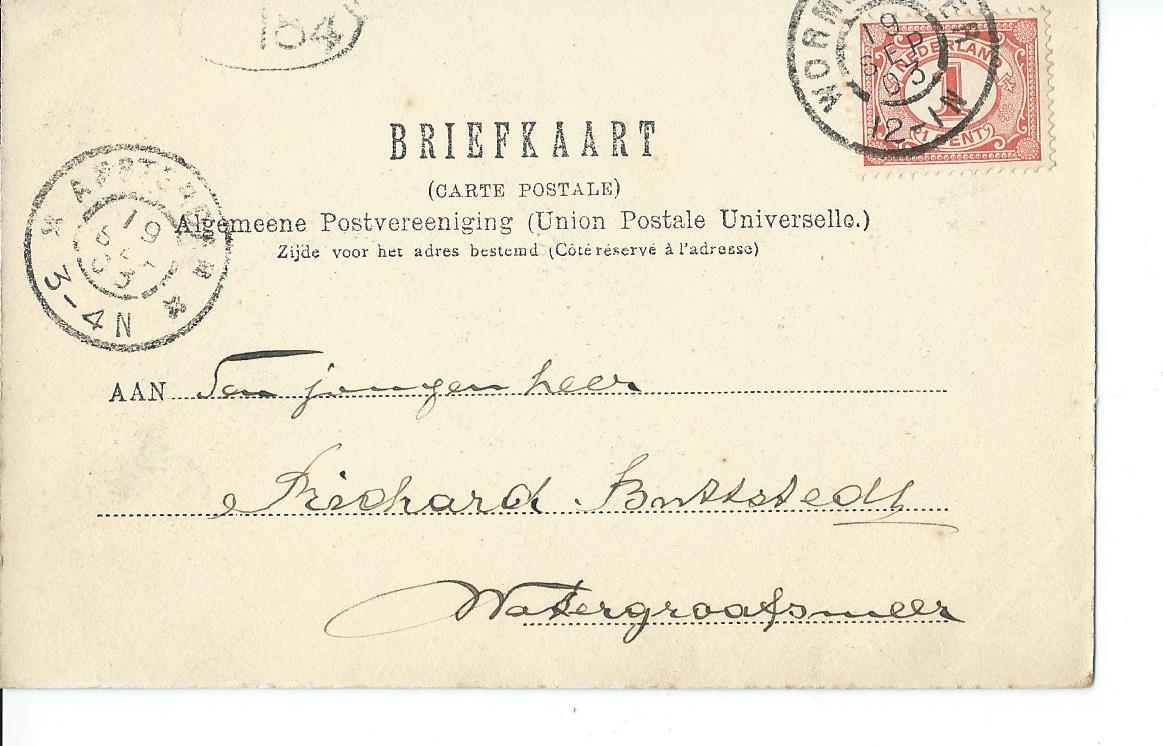 184
WORMERVEER
19
SEP
03
12-1N
NEDERLAND
1
1 CENT
BRIEFKAART
(CARTE POSTALE)
Algemeene Postvereeniging (Union Postale Universelle.)
Zijde voor het adres bestemd (Côté réservé à l'adresse)
AMSTERDAM
19
SEP
03
3-4N
AAN Den jongen heer
Richard Buttstedt
Watergraafsmeer